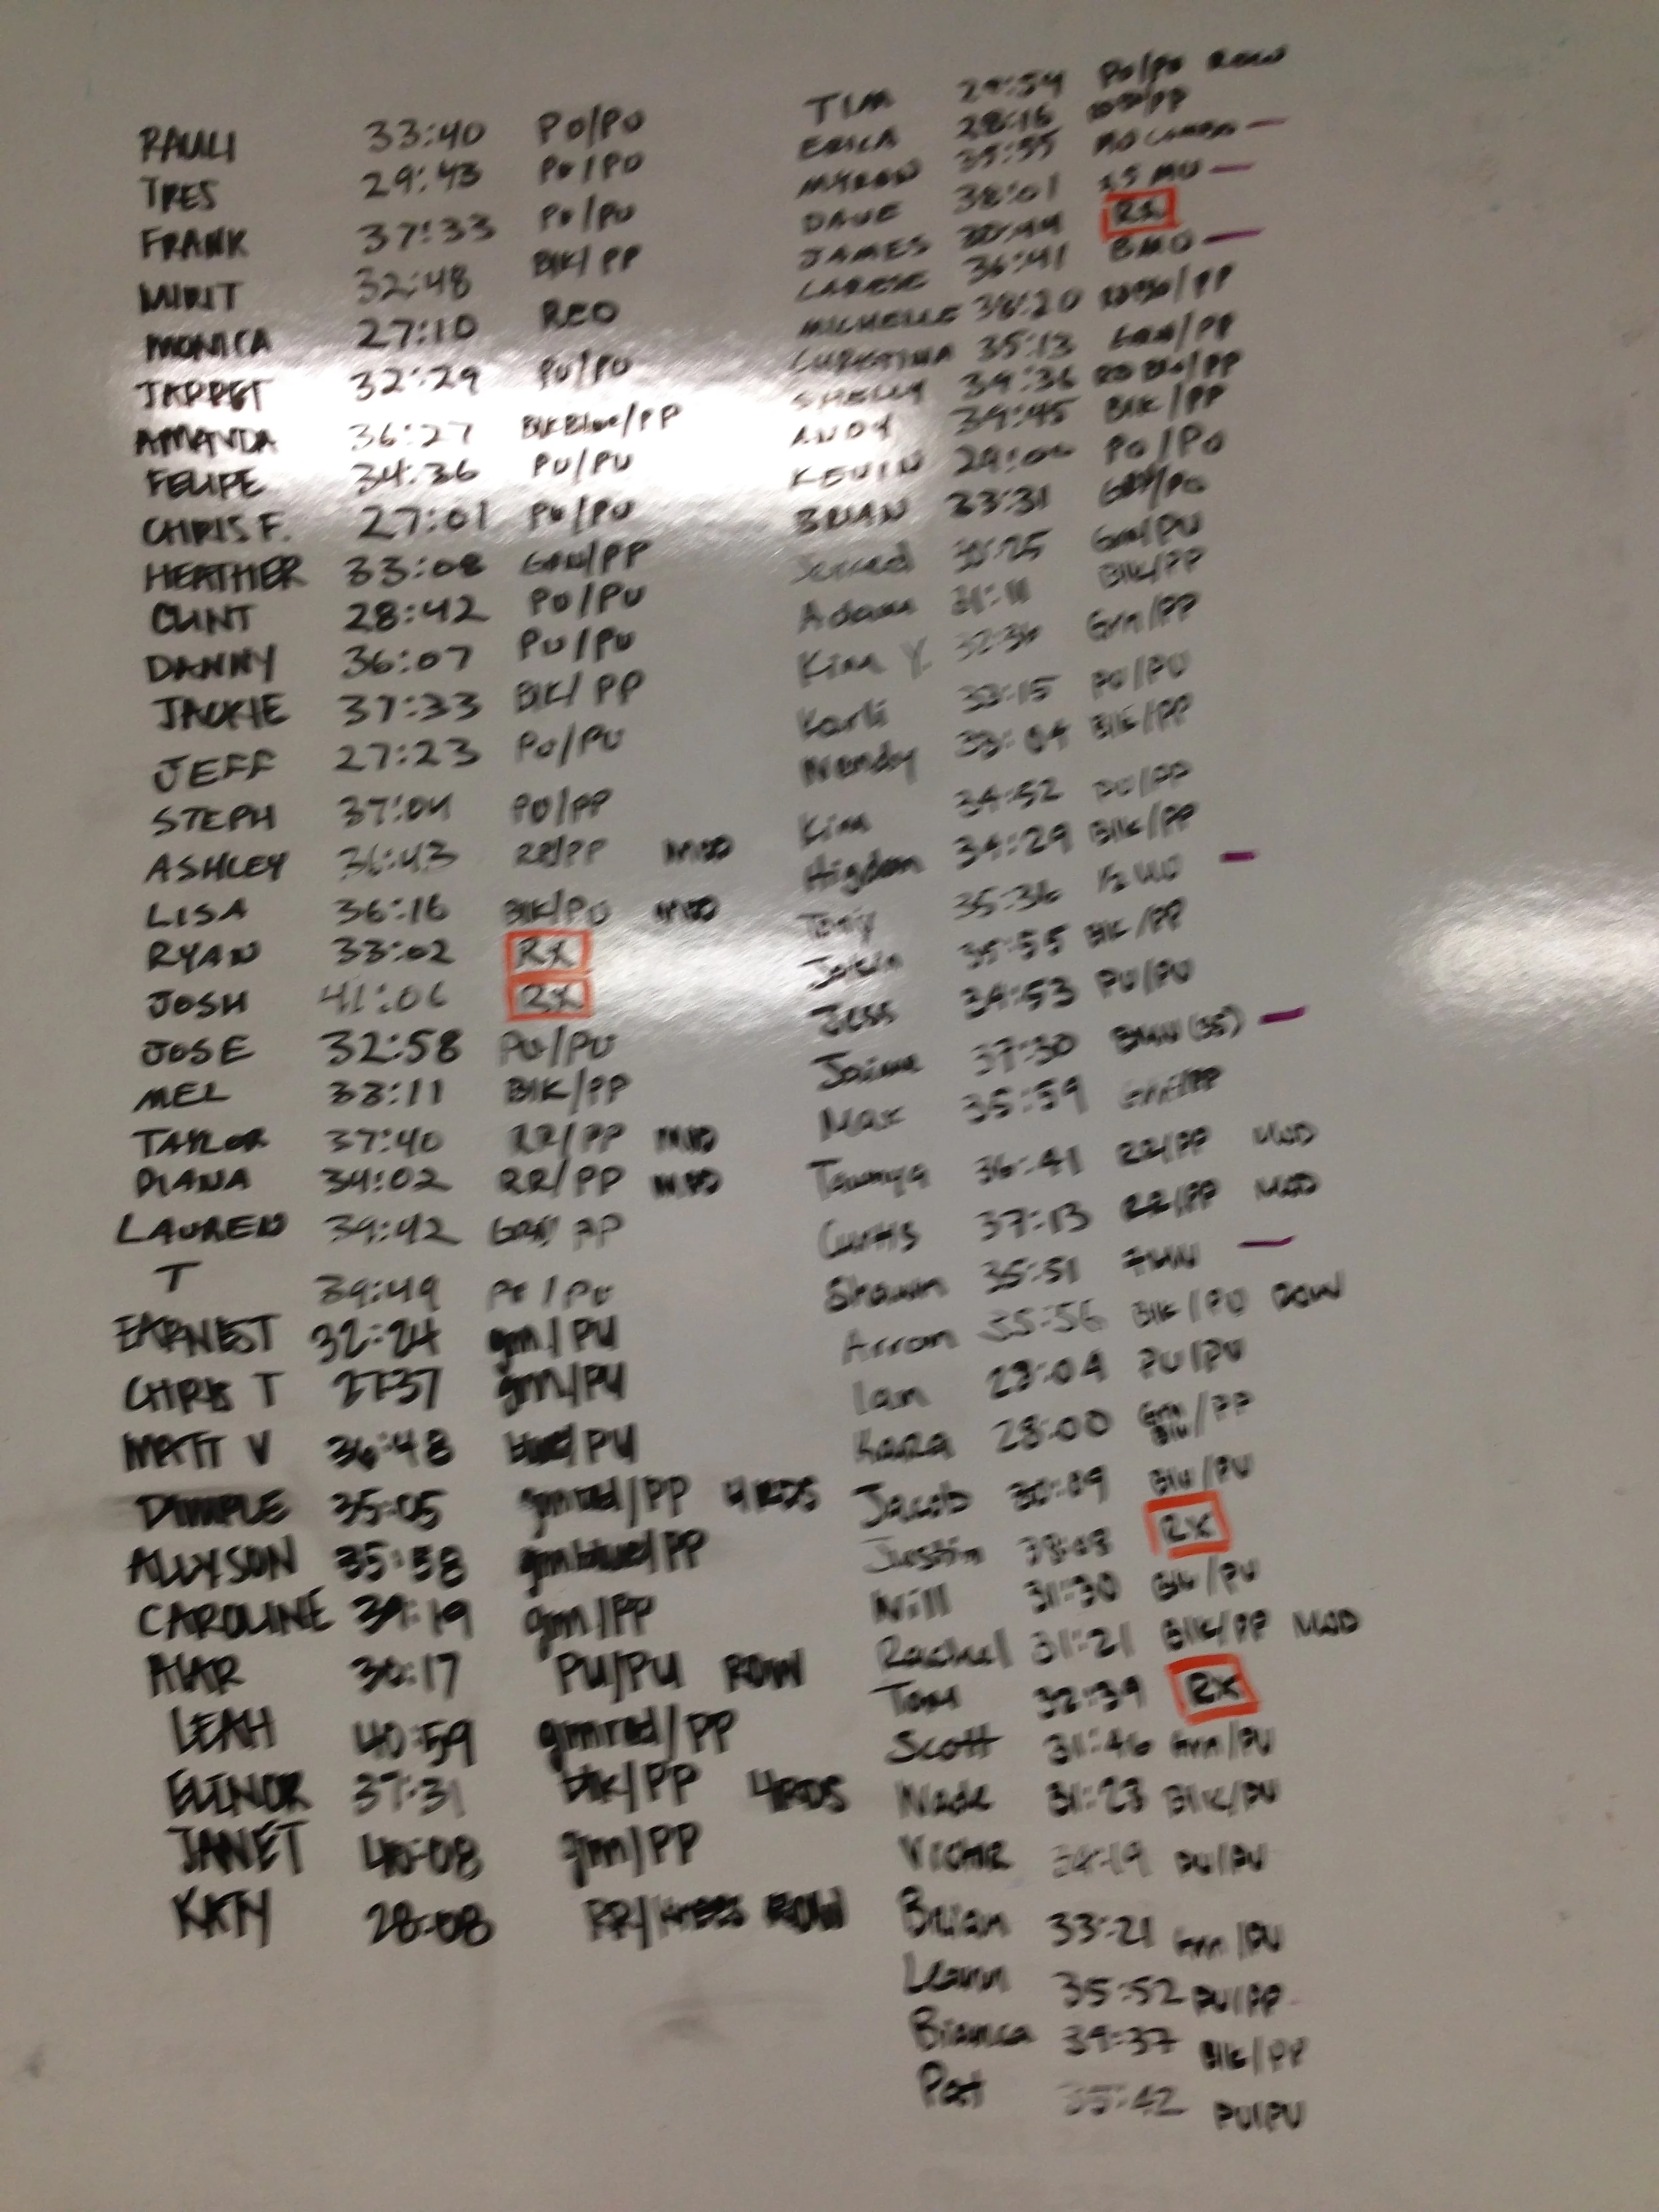 RAULI 33:40 PU/PU
TRES 29:43 PU/PU
FRANK 37:33 PU/PU
MIRIT 32:48 BlK/PP
MONICA 27:10 RED
JARRET 32:29 PU/PU
AMANDA 36:27 BlKBlue/PP
FELIPE 34:36 PU/PU
CHRIS F. 27:01 PU/PU
HEATHER 33:08 GRN/PP
CLINT 28:42 PU/PU
DANNY 36:07 PU/PU
JACKIE 37:33 BlK/PP
JEFF 27:23 PU/PU
STEPH 37:04 PU/PP
ASHLEY 36:43 RR/PP MOD
LISA 36:16 BlK/PU MOD
RYAN 33:02 RX
JOSH 41:06 RX
JOSE 32:58 PU/PU
MEL 33:11 BlK/PP
TAYLOR 37:40 RR/PP MOD
DIANA 34:02 RR/PP MOD
LAUREN 39:42 GRN/PP
T 39:49 PU/PU
EARNEST 32:24 grn/PU
CHRIS T 27:37 grn/PU
MATT V 36:48 blue/PU
DIMPLE 35:05 grnred/PP 4RDS
ALLYSON 35:58 grnblue/PP
CAROLINE 39:19 grn/PP
30:17 PU/PU ROW
LEAH 40:59 grnred/PP
ELINOR 37:31 blk/PP 4RDS
JANET 40:08 grn/PP
28:08 RR/knees ROW
TIM 29:54 PU/PU ROW
ERICA 28:16
MYRON 35:55
DAVE 38:01 15 MU
JAMES 30:44 RX
36:41 BMU
MICHELLE 38:20
CHRISTINA 35:13 GRN/PP
SHELLY 39:36
ANDY 39:45 BlK/PP
KEVIN PU/PU
BRIAN 33:31
Jerred
Adam 31:11 BlK/PP
Kim Y. 32:36 Grn/PP
Karli 33:15 PU/PU
Wendy 33:04 Blk/PP
Kim 34:52 PU/PP
Higdon 34:29 Blk/PP
Tony 35:36 1/2 MU
35:55 Blk/PP
Jess 34:53 PU/PU
Jaime 37:30 BMU (35)
Max 35:59 Grn/PP
Tawnya 36:41 RR/PP MOD
Curtis 37:13 RR/PP MOD
Shawn 35:51
Arron 35:56 Blk/PU ROW
Ian 29:04 PU/PU
Kara 28:00 Grn Blu/PP
Jacob 30:09 Blu/PU
Justin RX
Will 31:30 Blu/PU
Rachel 31:21 Blk/PP MOD
Tom 32:39 RX
Scott 31:46 Grn/PU
Wade 31:23 Blk/PU
Victor PU/PU
Brian 33:21 Grn/PU
Leann 35:52 PU/PP
Bianca 39:37 Blk/PP
Pat 35:42 PU/PU